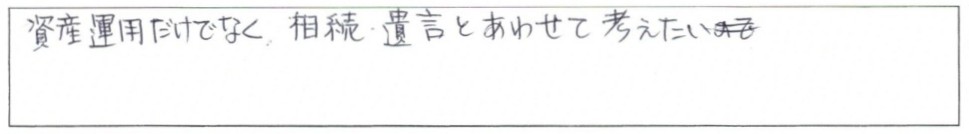 資産運用だけでなく、相続・遺言とあわせて考えたい